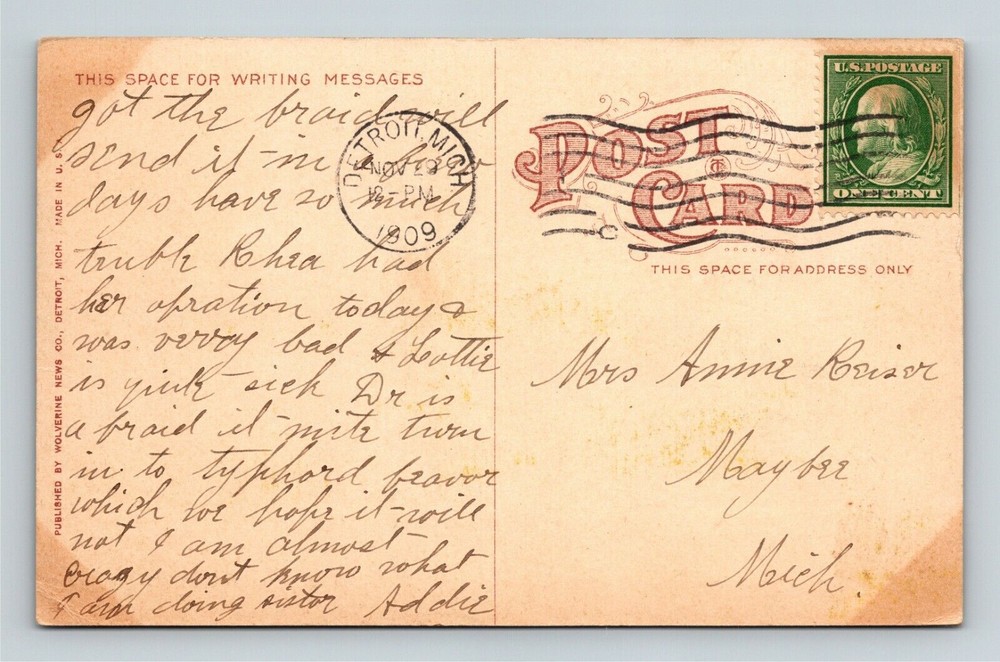 THIS SPACE FOR WRITING MESSAGES
got the braid will
send it in a few
days have so much
truble Rhea had
her opration today &
was verry bad & Lottie
is sick Dr is
afraid it mite turn
in to typhord feavor
which we hope it will
not I am almost
crazy dont know what
I am doing sister Addie
PUBLISHED BY WOLVERINE NEWS CO., DETROIT, MICH. MADE IN U. S.
DETROIT, MICH.
NOV 29
12-PM
1909
POST CARD
U.S. POSTAGE
ONE CENT
THIS SPACE FOR ADDRESS ONLY
Mrs Annie Reiser
Maybee
Mich.